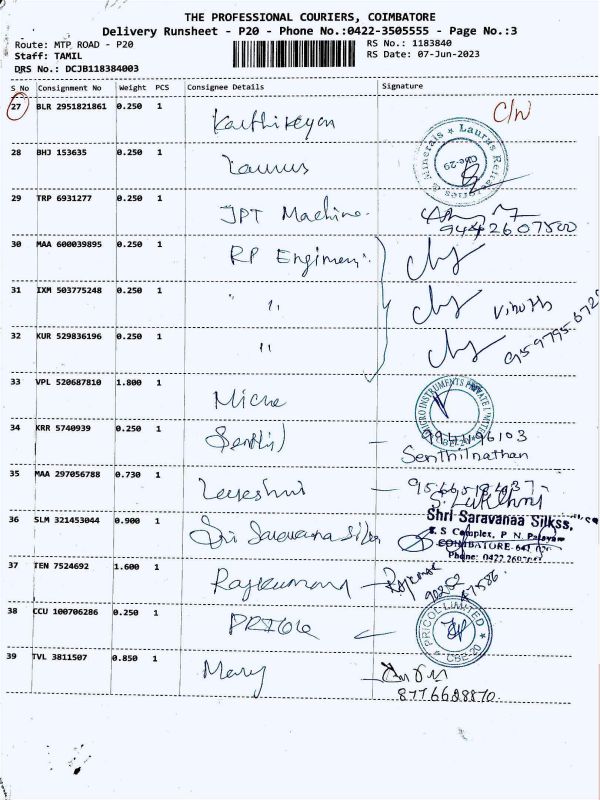 THE PROFESSIONAL COURIERS, COIMBATORE
Delivery Runsheet - P20 - Phone No.:0422-3505555 - Page No.:3
Route: MTP ROAD - P20
RS No.: 1183840
Staff: TAMIL
RS Date: 07-Jun-2023
DRS No.: DCJB118384003
S No Consignment No Weight PCS Consignee Details Signature
27 BLR 2951821861 0.250 1 Karthikeyan C/W
28 BHJ 153635 0.250 1 Laurus
Lauras Refractories & Minerals
Cbe-29
29 TRP 6931277 0.250 1 JPT Machine.
9442607800
30 MAA 600039895 0.250 1 RP Engineers
31 IXM 503775248 0.250 1 " "
Vinoth
32 KUR 529836196 0.250 1 " "
33 VPL 520687810 1.800 1 Micro
MICRO INSTRUMENTS PRIVATE LIMITED
34 KRR 5740939 0.250 1 Senthil
Senthilnathan
35 MAA 297056788 0.730 1
36 SLM 321453044 0.900 1 Sri Saravana Silks
Shri Saravanaa Silkss,
S Complex, P N Palayam
COIMBATORE-641
Phone: 0422
37 TEN 7524692 1.600 1 Rajkumar
38 CCU 100706286 0.250 1 PRICOL
PRICOL LIMITED
CBE-20
39 TVL 3811507 0.850 1 Mary
8776628870.